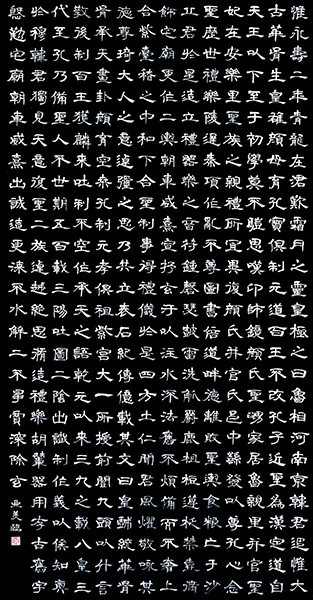 惟永壽二年青龍在涒歎霜月之靈皇極之日魯相河南京韓君追惟大
古華胥生皇雄顏母育孔寶俱制元道百王不改孔子近聖為漢定道自
天王以下至于初學莫不驥思嘆卬師鏡顏氏聖舅家居魯親里并官聖
妃在安樂里聖族之親禮所宜異復顏氏并官氏邑中繇發以尊孔心念
聖歷世禮樂陵遲秦項作亂不尊圖書倍道畔德離敗聖輿食糧亡于沙
丘君於是造立禮器樂之音苻鍾磬瑟鼓雷洗觴觚爵鹿柤梪籩柉禁壺修
飾宅廟更作二輿朝車威熹宣抒玄污以注水流法舊不煩備而不奢上
合紫臺稽之中和下合聖制事得禮儀於是四方士仁聞君風燿敬咏其
德尊琦大人之意逴彌之思乃共立表石紀傳億載其文曰皇戲統華
胥承天畫卦顏育空桑孔制元孝俱祖紫宮大一所授前闓九頭以什言
教後制百王獲麟來吐制不空作承天之語乾元以來三九之載八皇三
代至孔乃備聖人不世期五百載三陽吐圖二陰出讖制作之義以俟知奧
於穆韓君獨見天意復聖二族逴越絕思脩造禮樂胡輦器用存古舊宇
慇懃宅廟朝車威熹出誠造更漆不水解工不爭賈深除玄